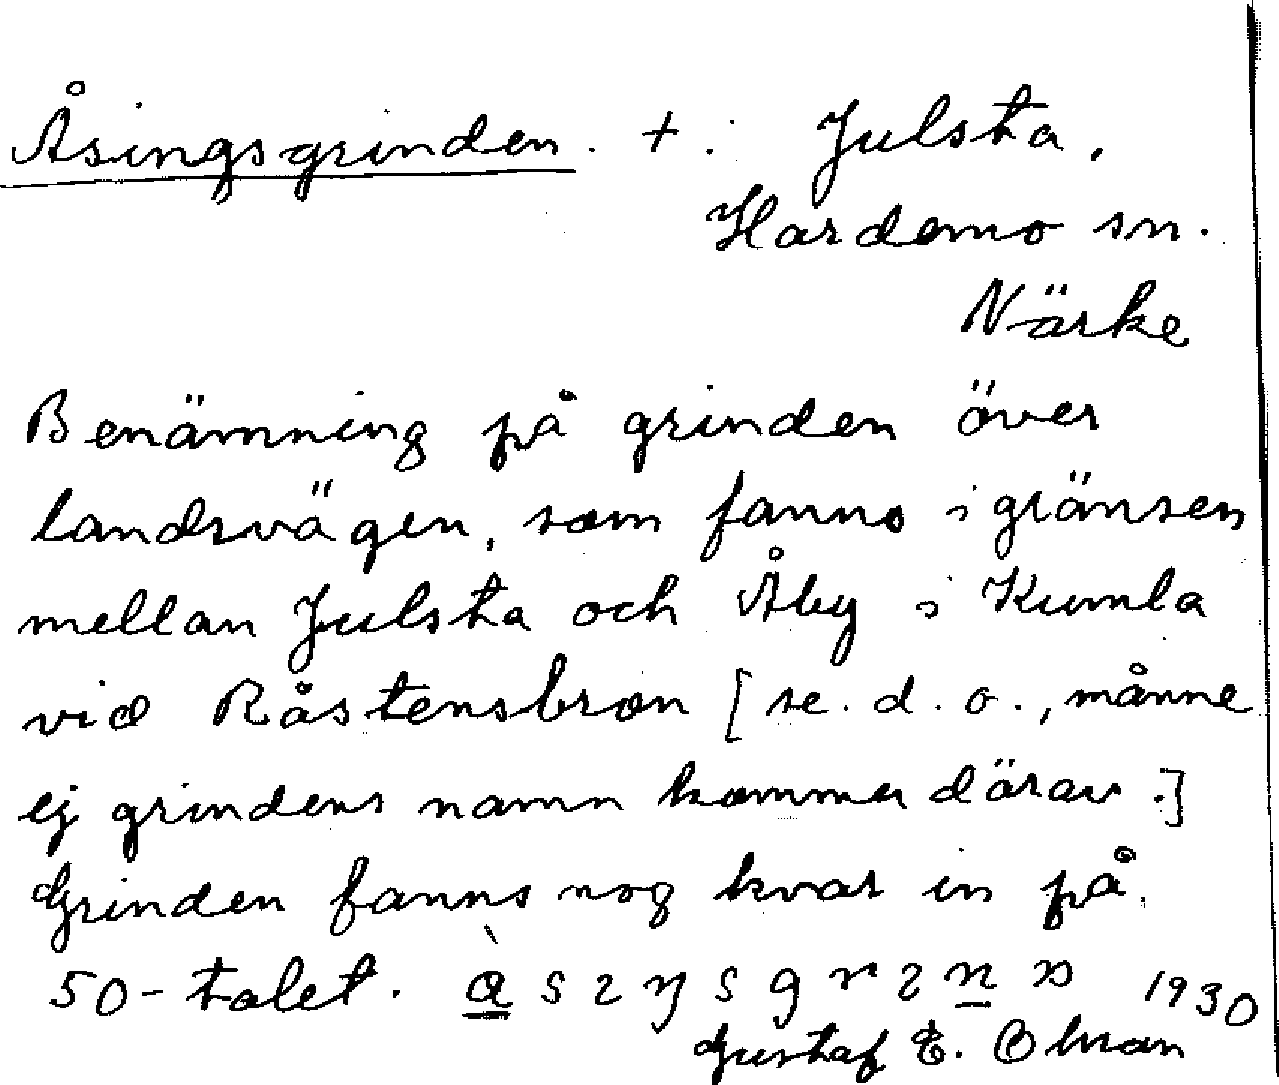 Åsingsgrinden. +. Julsta,
Hardemo sn.
Närke
Benämning på grinden över
landsvägen, som fanns i gränsen
mellan Julsta och Åby i Kumla
vid Råstensbron [se. d. o., månne
ej grindens namn kommer därav.]
Grinden fanns nog kvar in på
50-talet. 1930
Gustaf E.